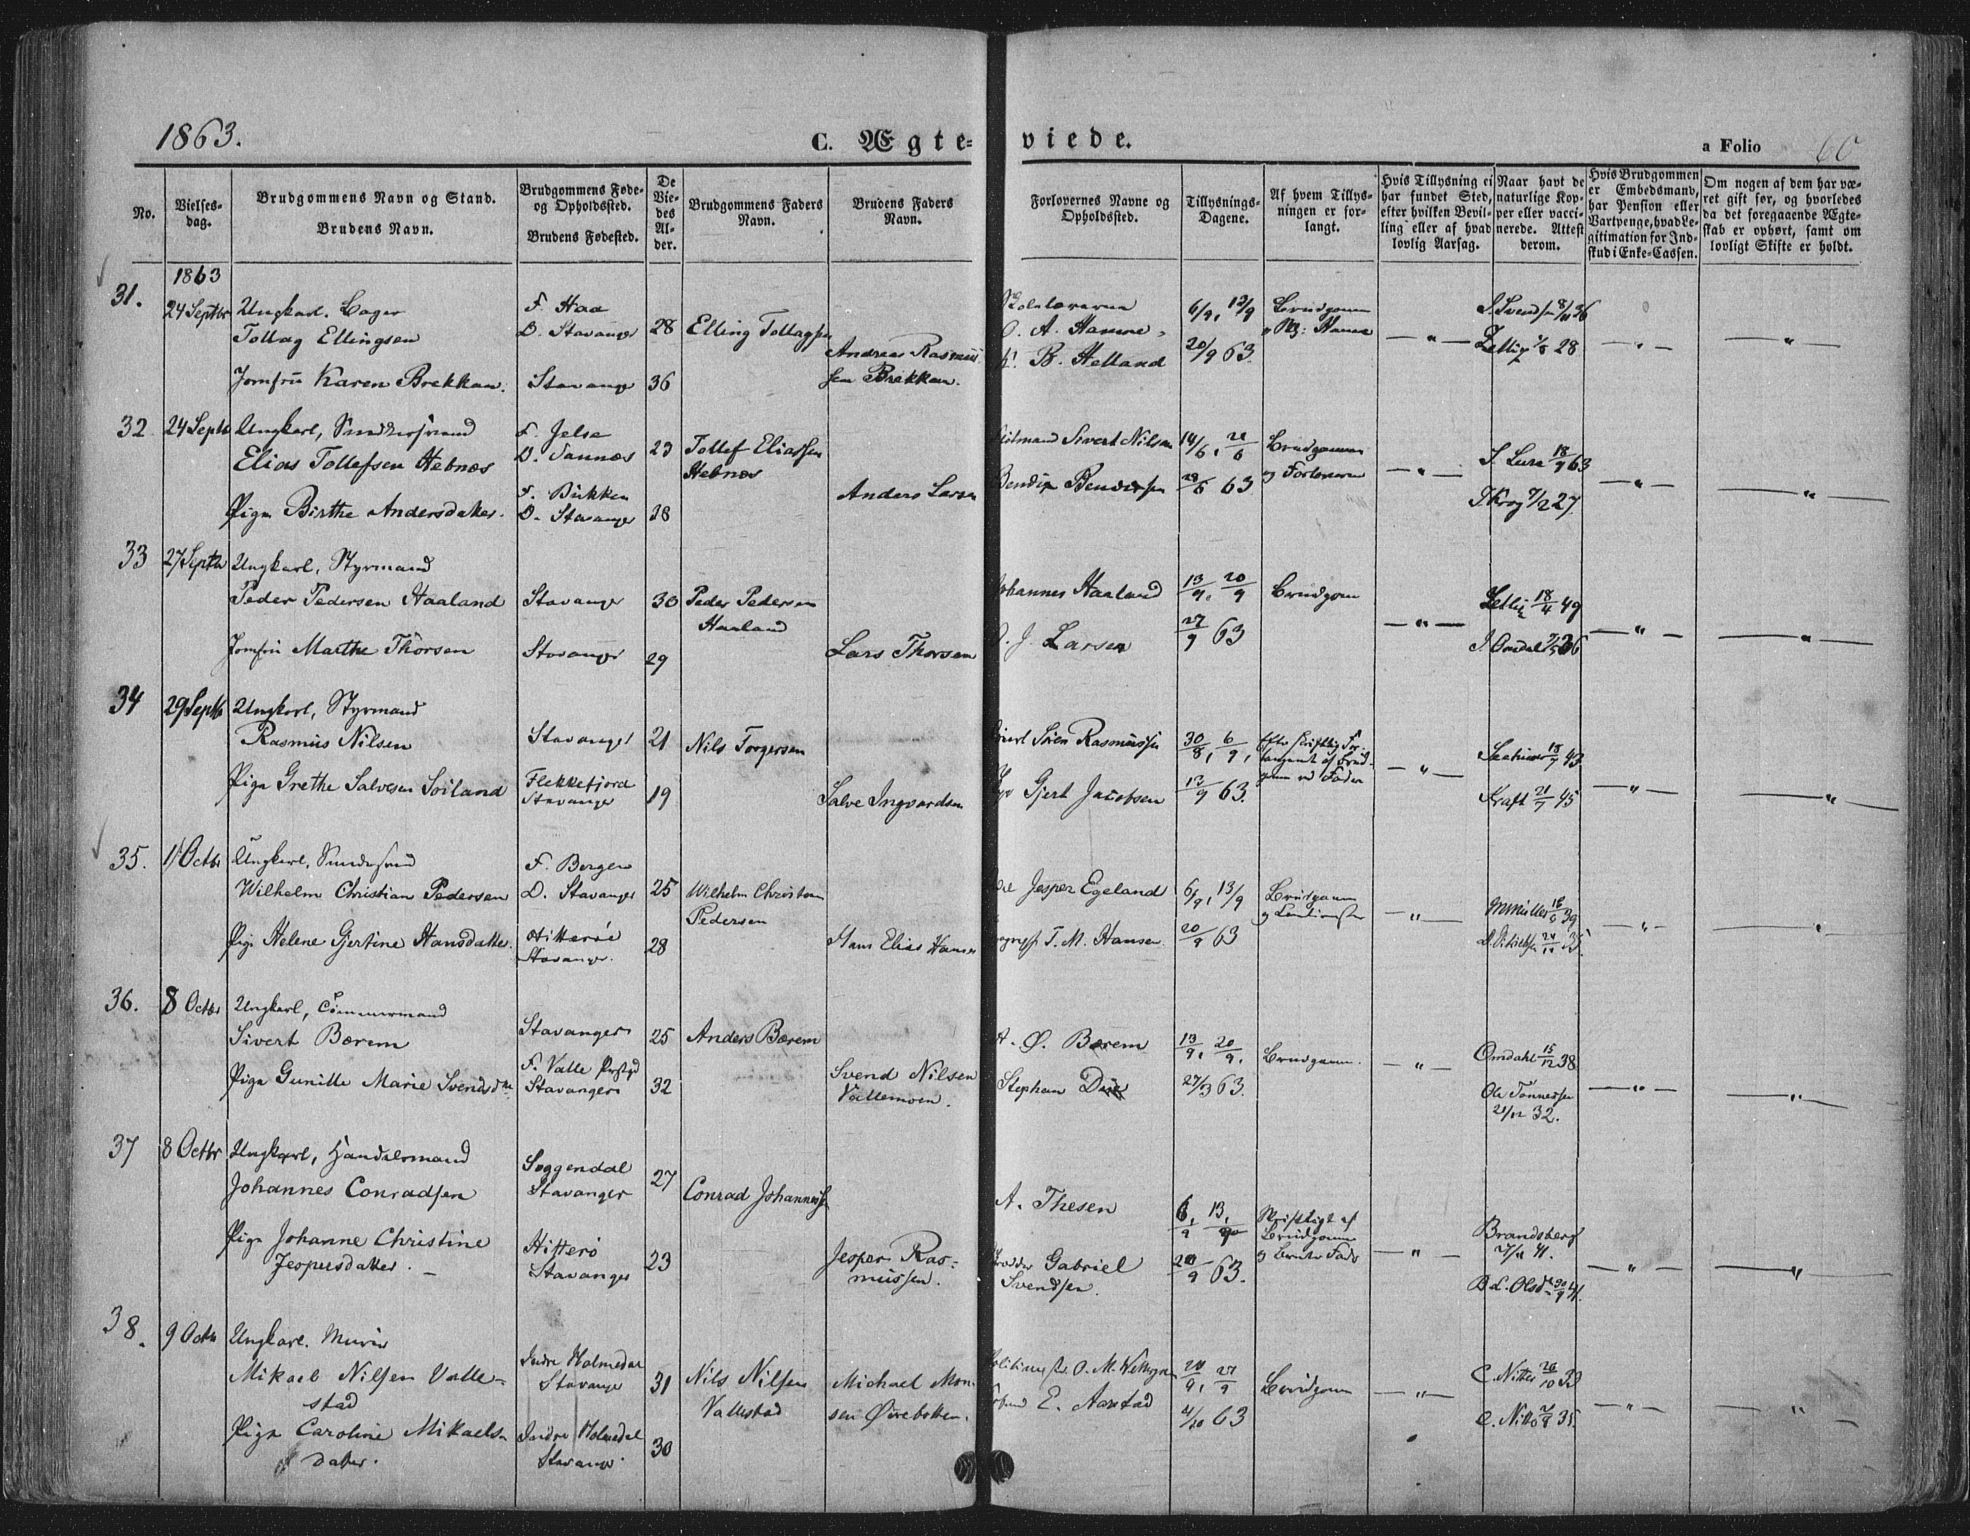 1863.
C. Ægte-
viede.
a Folio
60
No.
Vielses-
dag.
Brudgommens Navn og Stand.
Brudens Navn.
Brudgommens Føde-
og Opholdssted.
Brudens Fødested.
De
Vie-
des
Al-
der.
Brudgommens Faders
Navn.
Brudens Faders
Navn.
Forlovernes Navne og
Opholdssted.
Tillysnings-
Dagene.
Af hvem Tillys-
ningen er for-
langt.
Hvis Tillysning ei
har fundet Sted,
efter hvilken Bevil-
ling eller af hvad
lovlig Aarsag.
Naar havt de
naturlige Kop-
per eller vacci-
nerede. Attest
derom.
Hvis Brudgommen
er Embedsmand,
har Pension eller
Vartpenge, hvad Le-
gitimation for Ind-
skud i Enke-Cassen.
Om nogen af dem har væ-
ret gift før, og hvorledes
da det foregaaende Ægte-
skab er ophørt, samt om
lovligt Skifte er holdt.
1863
31.
24 Septbr
Ungkarl. Bager
Tollag Ellingsen
Jomfru Karen Brekkan.
F. Haa
O. Stavanger
Stavanger
28
36
Elling Tollagsen
Andreas Rasmus
sen Brekkan.
O. A. Hamre
B. Helland
6/9, 13/9
20/9 63.
Brudgommen
S. Svendsen 8/11 36
Zetlitz 28
32
24 Septb
Ungkarl,
Elias Tollefsen Hebnæs
Pige Birthe Andersdatter.
F. Jelse
O. Sannæs
F. Bukken
O. Stavanger
23
18
Tollef Eliassen
Hebnæs
Anders Larsen
Sivert Nilsen
14/6, 21/6
63
Brudgommen
og Forloverne
S. Lura 18/9 63
Krog 7/2 27.
33
27 Septbr
Ungkarl, Styrmand
Peder Pedersen Haaland
Jomfru Marthe Thorsen
Stavanger
Stavanger
30
29
Peder Pedersen
Haaland
Lars Thorsen
Johannes Haaland
J. Larsen
13/9, 20/9
27/9 63
Brudgom
Zetlitz 18/4 49
Omdal 36
34
29 Septb
Ungkarl, Styrmand
Rasmus Nilsen
Pige Grethe Salvesen Soiland
Stavanger
Flekkefjord
Stavanger
21
19
Nils Torgersen
Salve Ingvardsen
Sören Rasmussen
Gjert Jacobsen
30/8, 6/9,
13/9 63.
18/9 43
Kraft 21/7 45
35.
1 Octbr
Ungkarl,
Wilhelm Christian Pedersen
Pige Helene Gjertine Hansdatter.
F. Bergen
O. Stavanger
Hitterøe
Stavanger.
25
28
Wilhelm Christian
Pedersen
Hans Elias Hansen
Jesper Egeland
T. M. Hansen
6/9, 13/9
20/9 63
Brudgommen
Müller 39
35
36.
8 Octbr
Ungkarl, Tømmermand
Sivert Bærem
Pige Gunille Marie Svendsd
Stavanger
F. Valle Prstgd
Stavanger
25
32
Anders Bærem
Svend Nilsen
Vallemoen.
A. Ø. Bærem
Stephan
13/9, 20/9,
27/9 63.
Brudgommen.
Omdahl 15/12 38
Ole Tönnessen
21/12 32.
37
8 Octbr
Ungkarl, Handelsmand
Johannes Conradsen
Pige Johanne Christine
Jespersdatter.
Soggendal
Stavanger
Hitterø
Stavanger
27
23
Conrad Johannessen
Jesper Ras-
mussen.
A. Thesen
Gabriel
Svendsen.
6/9, 13/9
20/9 63.
Skriftligt af
Brudgommen
og Brudens Fader
Brandsberg
41.
41.
38.
9 Octbr
Ungkarl. Murer
Mikael Nilsen Valle-
stad
Pige Caroline Mikaels-
datter.
Indre Holmedal
Stavanger
Indre Holmedal
Stavanger
31
30
Nils Nilsen
Vallestad
Michael Mon-
sen Øvrebotten.
O. M.
E. Aarstad
20/9, 27/9
4/10 63
Brudgommen
C. Nitter 26/10 33
C. Nitter 35